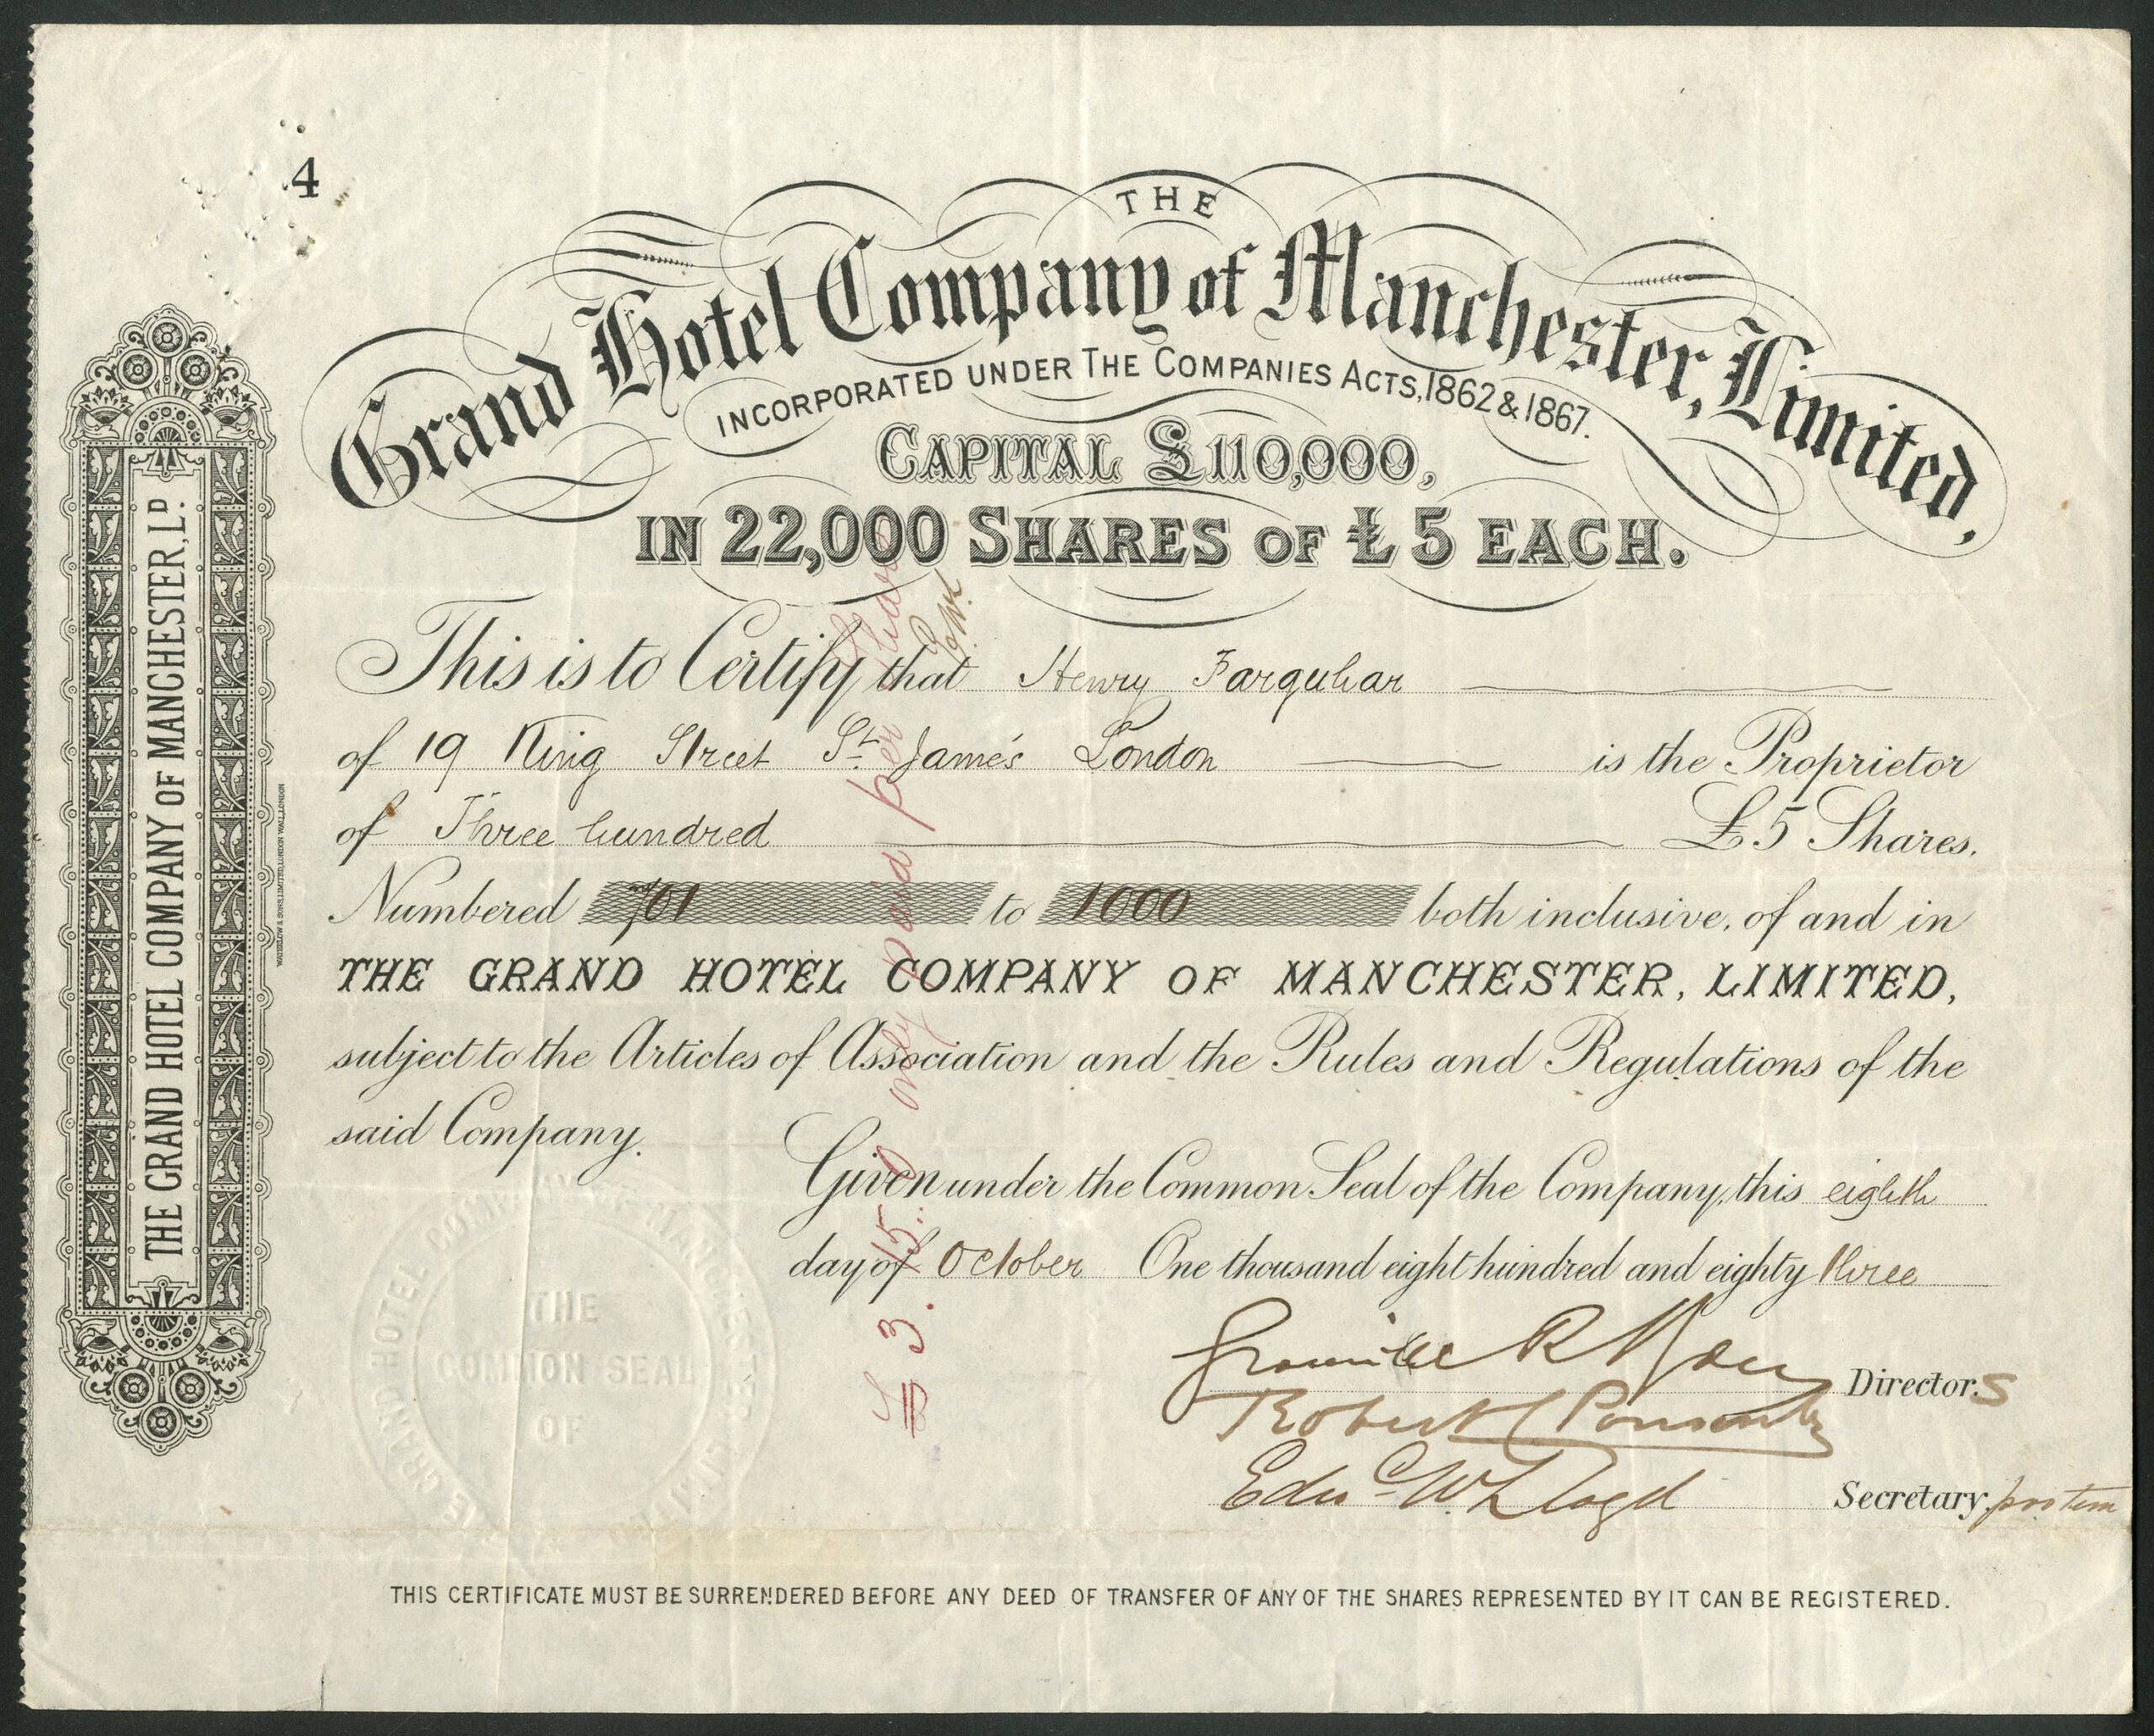 4
THE
Grand Hotel Company of Manchester, Limited,
INCORPORATED UNDER THE COMPANIES ACTS, 1862 & 1867.
CAPITAL £110,000,
IN 22,000 SHARES OF £5 EACH.
This is to Certify that Henry Farquhar
of 19 King Street St. James's London is the Proprietor
of Three hundred £5 Shares.
Numbered 701 to 1000 both inclusive, of and in
THE GRAND HOTEL COMPANY OF MANCHESTER, LIMITED,
subject to the Articles of Association and the Rules and Regulations of the
said Company.
Given under the Common Seal of the Company, this eighth
day of October One thousand eight hundred and eighty three
Directors
Robert Ponsonby
Edwd W. Lloyd Secretary pro tem
THIS CERTIFICATE MUST BE SURRENDERED BEFORE ANY DEED OF TRANSFER OF ANY OF THE SHARES REPRESENTED BY IT CAN BE REGISTERED.
THE GRAND HOTEL COMPANY OF MANCHESTER, LD.
WATERLOW & SONS LIMITED, LONDON WALL, LONDON
£3.15..0 only paid per Share
E.W.L
THE
COMMON SEAL
OF
THE GRAND HOTEL COMPANY OF MANCHESTER LIMITED